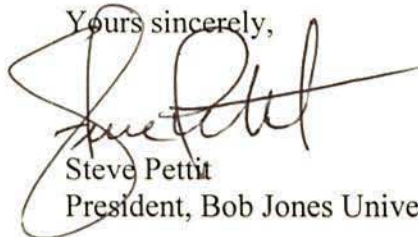 Yours sincerely,
Steve Pettit
Steve Pettit
President, Bob Jones Unive